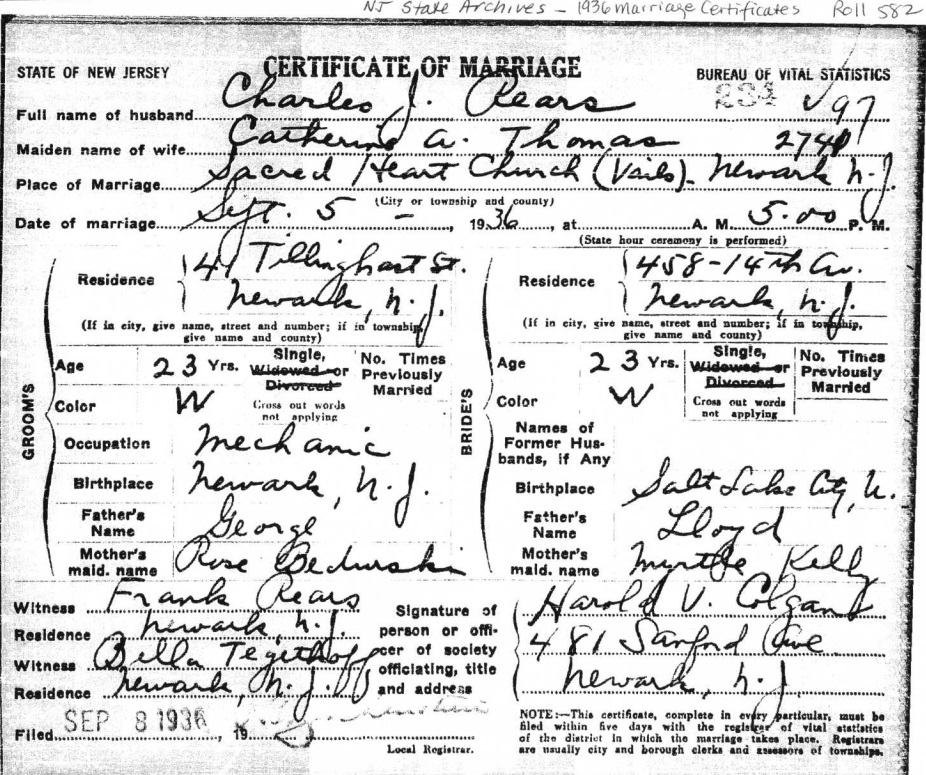 NJ State Archives - 1936 Marriage Certificates Roll 582
STATE OF NEW JERSEY CERTIFICATE OF MARRIAGE BUREAU OF VITAL STATISTICS
234 97
Full name of husband Charles J. Rears
Maiden name of wife Catherine A. Thomas 2741
Place of Marriage Sacred Heart Church (Vails) - Newark N.J.
(City or township and county)
Date of marriage Sept. 5 - , 1936, at A. M. 5.00 P. M.
(State hour ceremony is performed)
GROOM'S
Residence 41 Tillinghast St.
Newark, N.J.
(If in city, give name, street and number; if in township, give name and county)
Age 23 Yrs. Single, Widowed or Divorced No. Times Previously Married
Color W Cross out words not applying
Occupation Mechanic
Birthplace Newark, N.J.
Father's Name George
Mother's maid. name Rose Bedurski
BRIDE'S
Residence 458-14th Av.
Newark, N.J.
(If in city, give name, street and number; if in township, give name and county)
Age 23 Yrs. Single, Widowed or Divorced No. Times Previously Married
Color W Cross out words not applying
Names of Former Husbands, if Any
Birthplace Salt Lake City, U.
Father's Name Lloyd
Mother's maid. name Myrtle Kelly
Witness Frank Rears
Residence Newark, N.J.
Witness Bella Tegethoff
Residence Newark, N.J.
Signature of person or officer of society officiating, title and address
Harold V. Colgan
481 Sanford Ave
Newark, N.J.
Filed SEP 8 1936, 19
Local Registrar.
NOTE:—This certificate, complete in every particular, must be
filed within five days with the register of vital statistics
of the district in which the marriage takes place. Registrars
are usually city and borough clerks and assessors of townships.